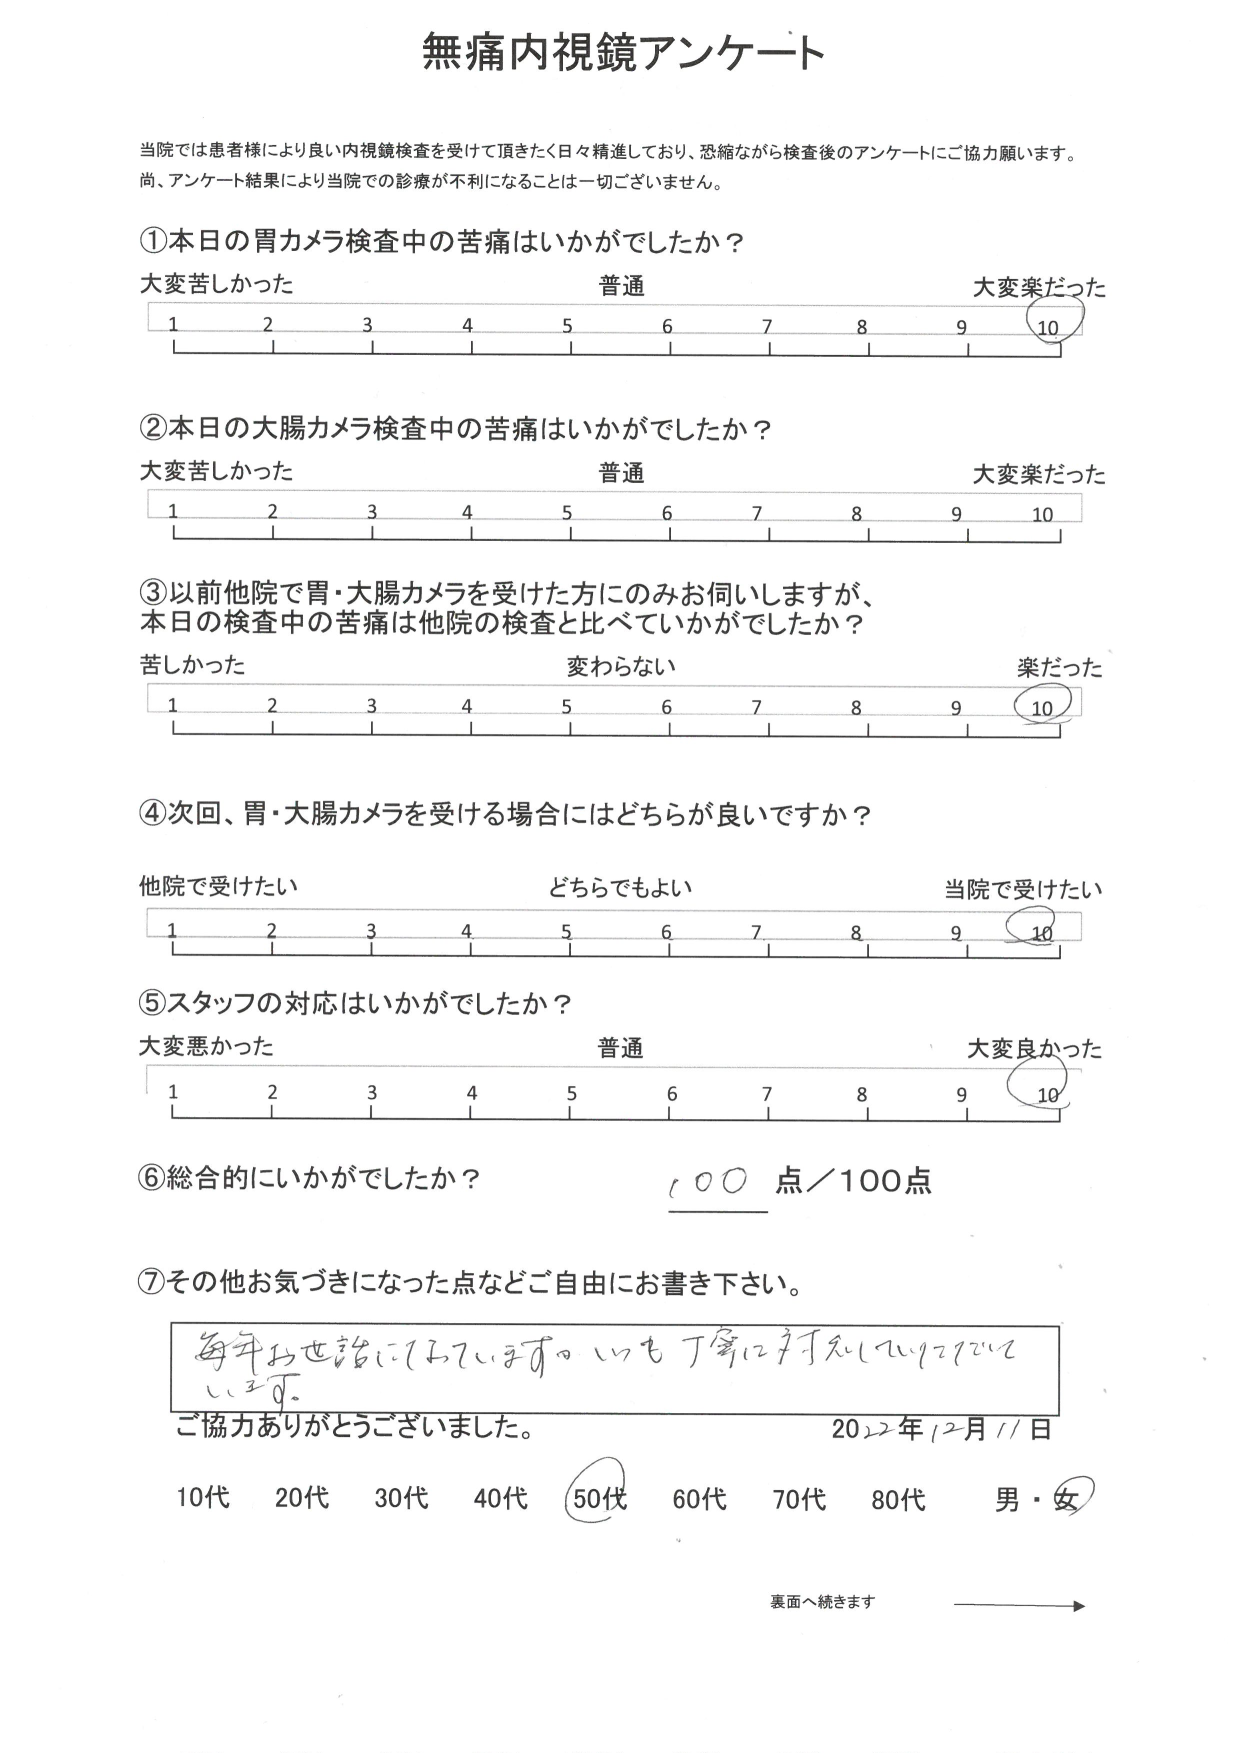 無痛内視鏡アンケート
当院では患者様により良い内視鏡検査を受けて頂きたく日々精進しており、恐縮ながら検査後のアンケートにご協力願います。
尚、アンケート結果により当院での診療が不利になることは一切ございません。
①本日の胃カメラ検査中の苦痛はいかがでしたか？
大変苦しかった 普通 大変楽だった
1 2 3 4 5 6 7 8 9 10
②本日の大腸カメラ検査中の苦痛はいかがでしたか？
大変苦しかった 普通 大変楽だった
1 2 3 4 5 6 7 8 9 10
③以前他院で胃・大腸カメラを受けた方にのみお伺いしますが、
本日の検査中の苦痛は他院の検査と比べていかがでしたか？
苦しかった 変わらない 楽だった
1 2 3 4 5 6 7 8 9 10
④次回、胃・大腸カメラを受ける場合にはどちらが良いですか？
他院で受けたい どちらでもよい 当院で受けたい
1 2 3 4 5 6 7 8 9 10
⑤スタッフの対応はいかがでしたか？
大変悪かった 普通 大変良かった
1 2 3 4 5 6 7 8 9 10
⑥総合的にいかがでしたか？ 100 点／100点
⑦その他お気づきになった点などご自由にお書き下さい。
毎年お世話になっています。いつも丁寧に対応して
います。
ご協力ありがとうございました。 2022年12月11日
10代 20代 30代 40代 50代 60代 70代 80代 男・女
裏面へ続きます